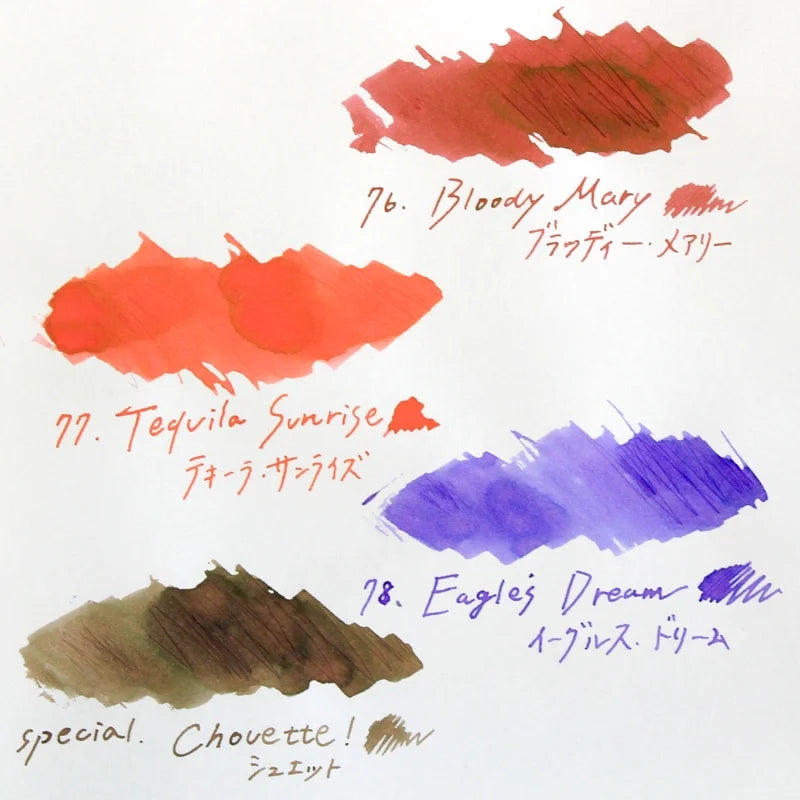 76. Bloody Mary
ブラッディー・メアリー
77. Tequila Sunrise
テキーラ・サンライズ
78. Eagle's Dream
イーグルス・ドリーム
special. Chouette!
シュエット